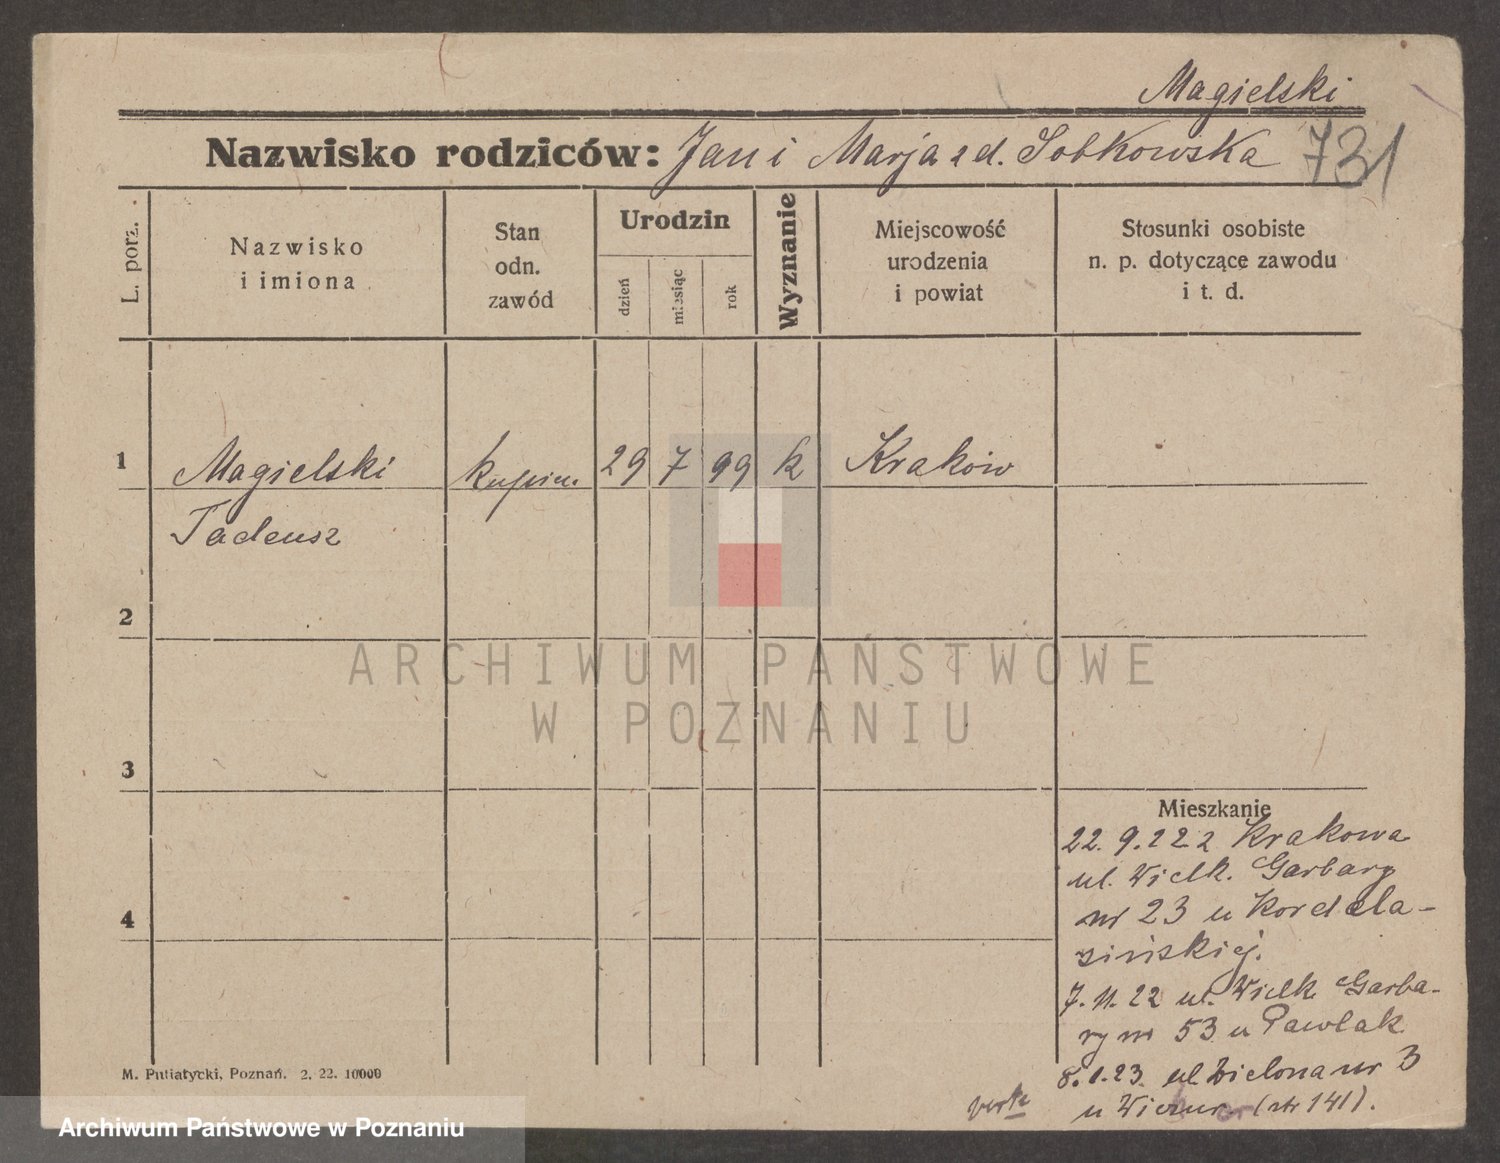 Magielski
Nazwisko rodziców: Jan i Marja z d. Sobkowska 731
L. porz.
Nazwisko
i imiona
Stan
odn.
zawód
Urodzin
dzień
miesiąc
rok
Wyznanie
Miejscowość
urodzenia
i powiat
Stosunki osobiste
n. p. dotyczące zawodu
i t. d.
1 Magielski kupiec 29 7 99 k Kraków
Tadeusz
2
ARCHIWUM PAŃSTWOWE
W POZNANIU
3
Mieszkanie
22. 9. 22 z Krakowa
ul. Wielk. Garbary
nr 23 u Kordela-
sińskiej.
7. 11. 22 ul. Wielk. Garba-
ry nr 53 u Pawlak
8. 1. 23. ul Zielona nr 3
u (str 141).
4
M. Putiatycki, Poznań. 2. 22. 10000
Archiwum Państwowe w Poznaniu